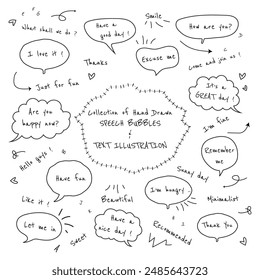 What shall we do ?
Have a
good day !
Smile
How are you?
I love it !
Thanks
Excuse me
Come and join us !
Just for fun
It's a
GREAT day !
Are you
happy now?
Collection of Hand Drawn
SPEECH BUBBLES
&
TEXT ILLUSTRATION
I'm fine
Remember
me
Hello guys !
Have fun
Sunny day
I'm hungry.
Like it !
Beautiful
Minimalist
Let me in
Sweet
Have a
nice day !
Recommended
Thank You
shutterstock.com · 2485643723